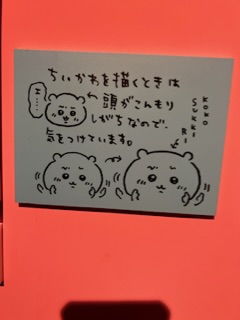 ちいかわを描くときは
え……
←頭がこんもり
しがちなので、
気をつけています。
KOKO
SUKKI
RI